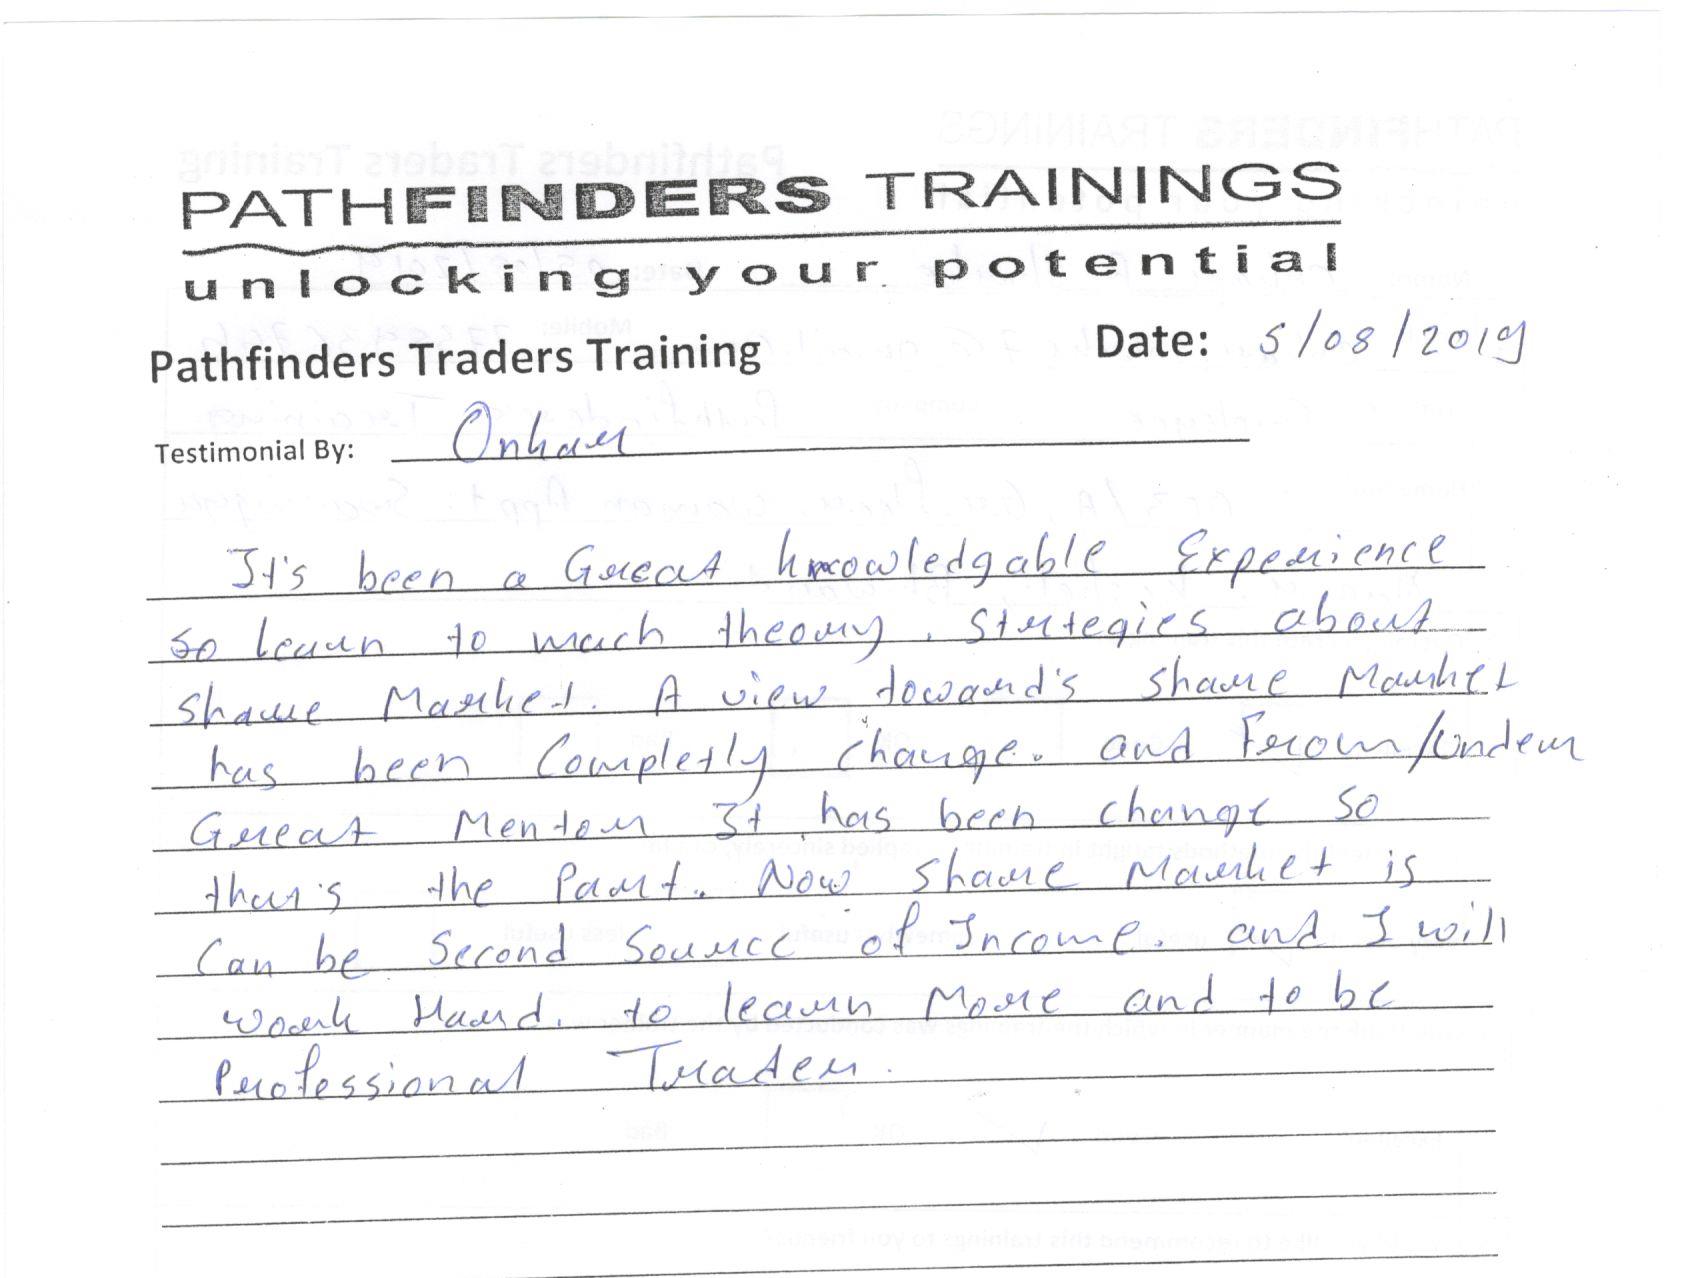 PATHFINDERS TRAININGS
unlocking your potential
Pathfinders Traders Training Date: 5/08/2019
Testimonial By: Onkar
It's been a Great knowledgable Experience
so learn to much theory, Strtegies about
share Market. A view toward's share Market
has been Completly change. and From/Under
Great Mentor It has been change so
that's the Part. Now share Market is
Can be Second Source of Income. and I will
work Hard. to learn More and to be
Professional Trader.